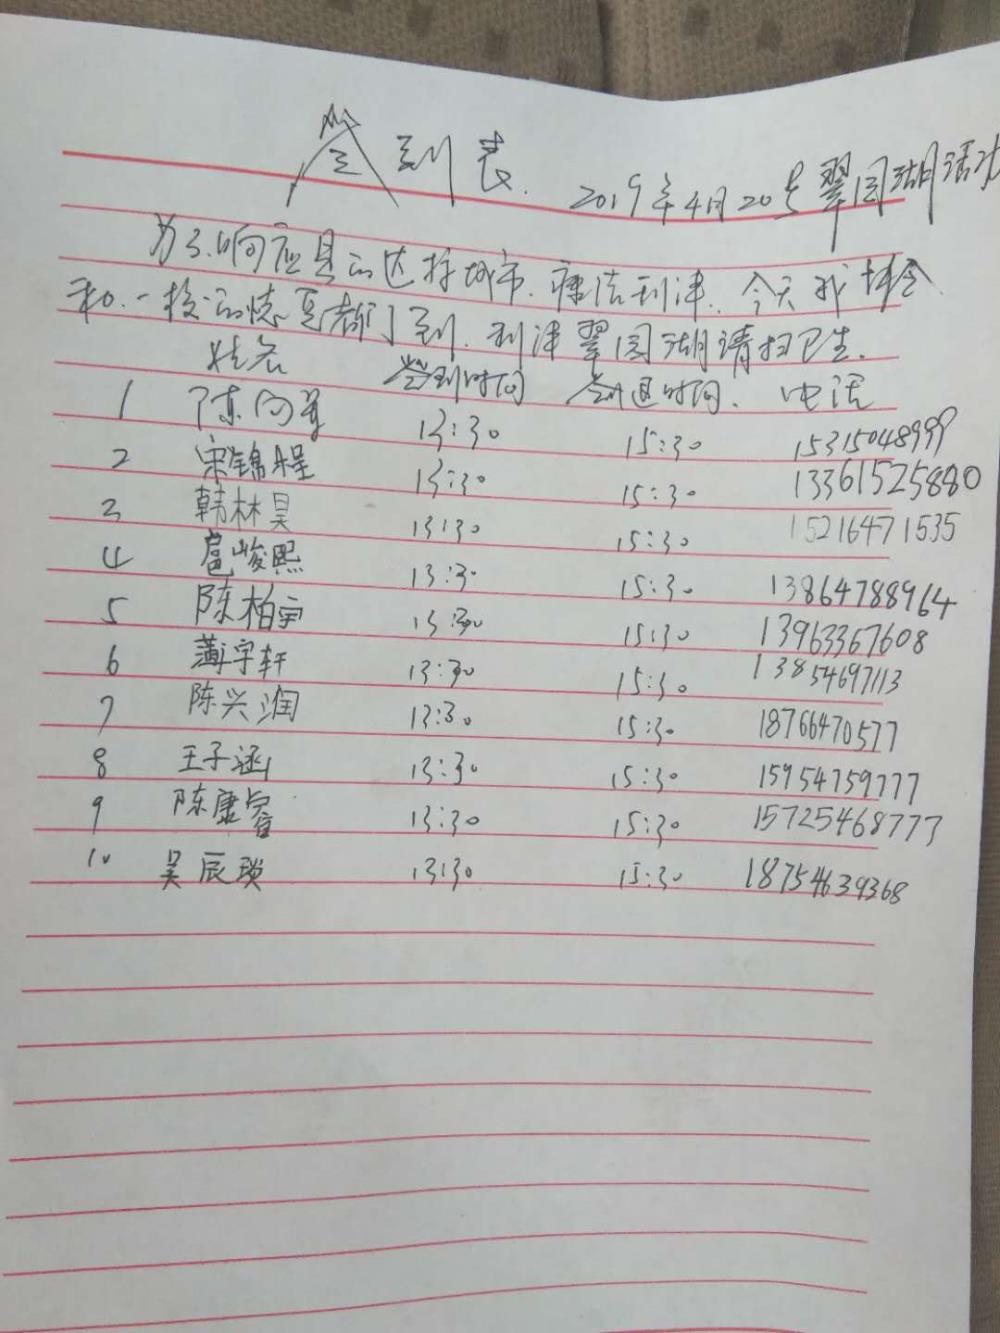 签到表. 2019年4月20号翠园湖活动
为了响应县的达标城市.清洁利津.今天我协会
和.一校的志愿者们到.利津翠园湖清扫卫生.
姓名 签到时间 签退时间. 电话
1 陈 13:30 15:30 15315048999
2 宋锦程 13:30 15:30 13361525880
3 韩林昊 13:30 15:30 15216471535
4 扈峻熙 13:30 15:30 13864788964
5 陈柏宇 13:30 15:30 13963367608
6 薄宇轩 13:30 15:30 13854697113
7 陈兴润 13:30 15:30 18766470577
8 王子涵 13:30 15:30 15954759777
9 陈康睿 13:30 15:30 15725468773
10 吴辰琐 13:30 15:30 18754639368